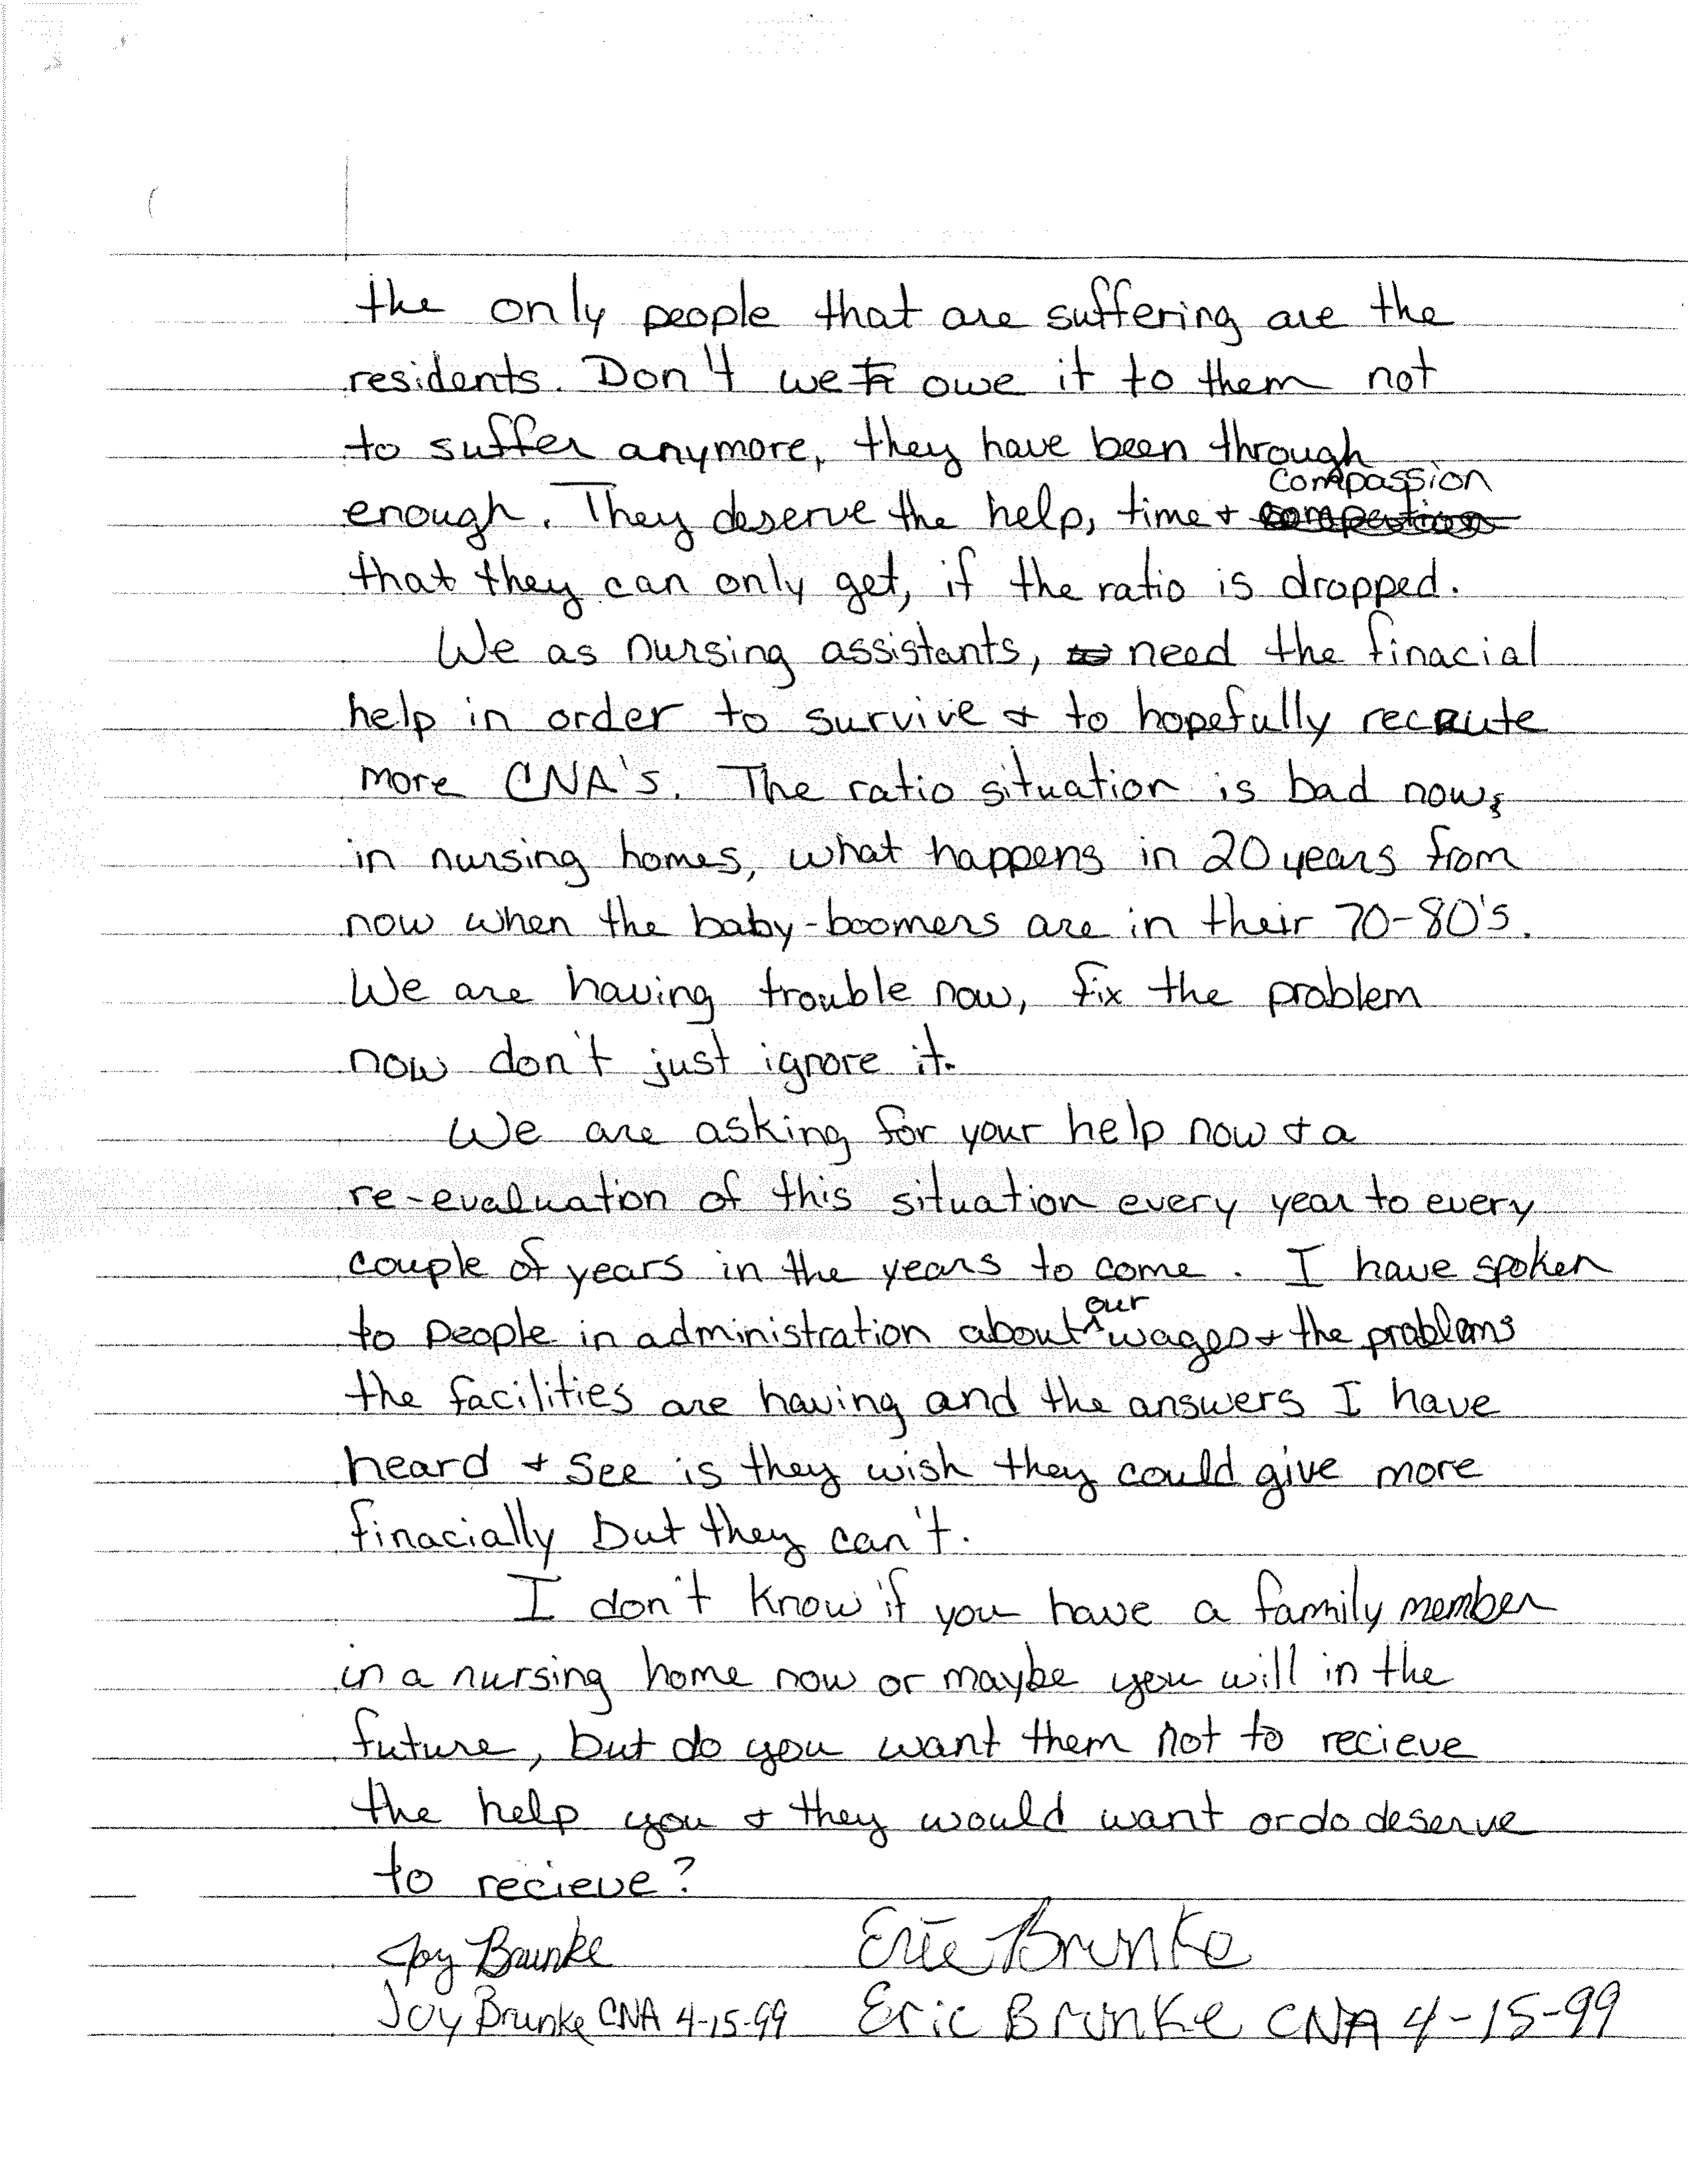 the only people that are suffering are the
residents. Don't we owe it to them not
to suffer anymore, they have been through
enough. They deserve the help, time + compassion
that they can only get, if the ratio is dropped.
We as nursing assistants, need the finacial
help in order to survive + to hopefully recrute
more CNA's. The ratio situation is bad now,
in nursing homes, what happens in 20 years from
now when the baby-boomers are in their 70-80's.
We are having trouble now, fix the problem
now don't just ignore it.
We are asking for your help now + a
re-evaluation of this situation every year to every
couple of years in the years to come. I have spoken
to people in administration about our wages + the problems
the facilities are having and the answers I have
heard + see is they wish they could give more
finacially but they can't.
I don't know if you have a family member
in a nursing home now or maybe you will in the
future, but do you want them not to recieve
the help you + they would want or do deserve
to recieve?
Joy Brunke Eric Brunke
Joy Brunke CNA 4-15-99 Eric Brunke CNA 4-15-99